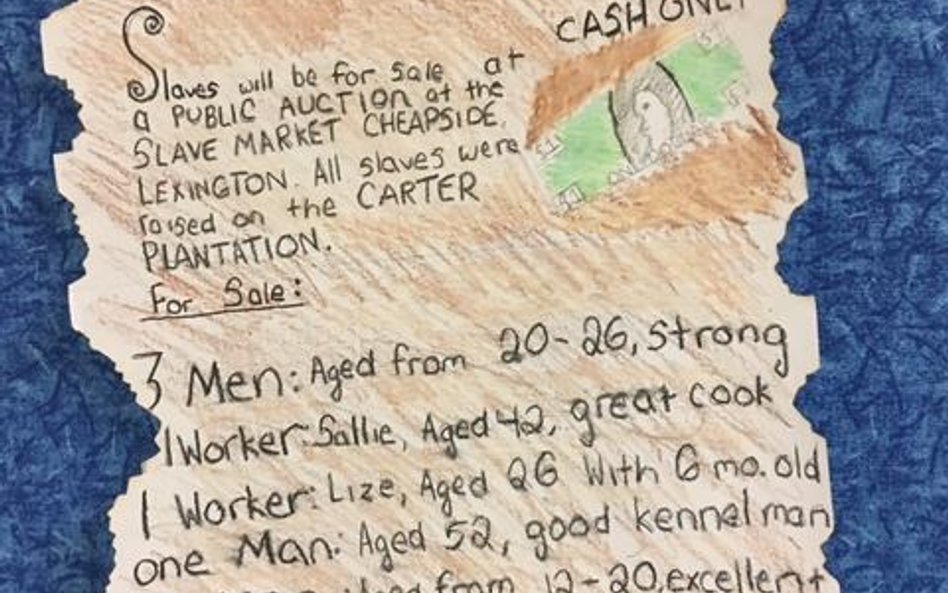 CASH ONLY
Slaves will be for sale at
a PUBLIC AUCTION at the
SLAVE MARKET CHEAPSIDE,
LEXINGTON. All slaves were
raised on the CARTER
PLANTATION.
For Sale:
3 Men: Aged from 20-26, strong
1 Worker: Sallie, Aged 42, great cook
1 Worker: Lize, Aged 26 With 6 mo. old
one Man: Aged 52, good kennel man
from 12-20, excellent